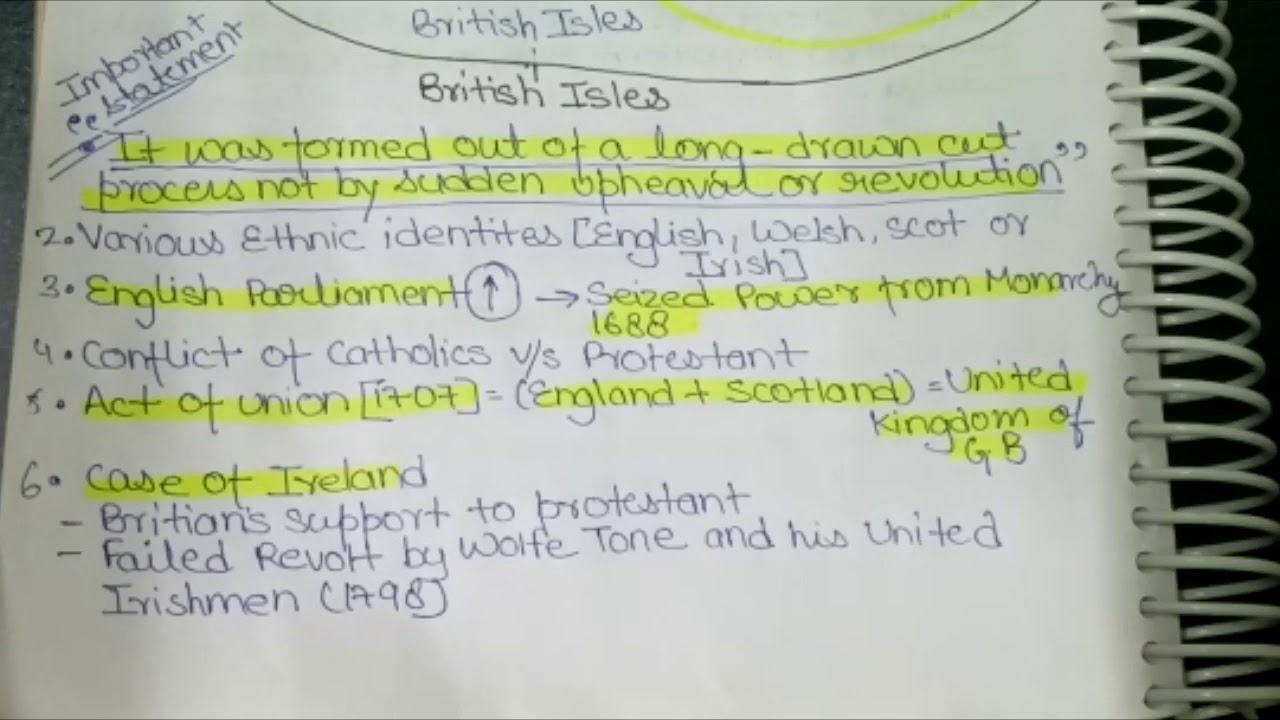 British Isles
British Isles
Important
statement
"It was formed out of a long-drawn out
process not by sudden upheaval or revolution"
2. Various Ethnic identites [English, Welsh, scot or
Irish]
3. English Parliament ↑ → Seized Power from Monarchy
1688
4. Conflict of Catholics v/s Protestant
5. Act of union [1707] = (England + Scotland) = United
Kingdom of
GB
6. Case of Ireland
- Britian's support to protestant
- Failed Revolt by Wolfe Tone and his United
Irishmen (1798)